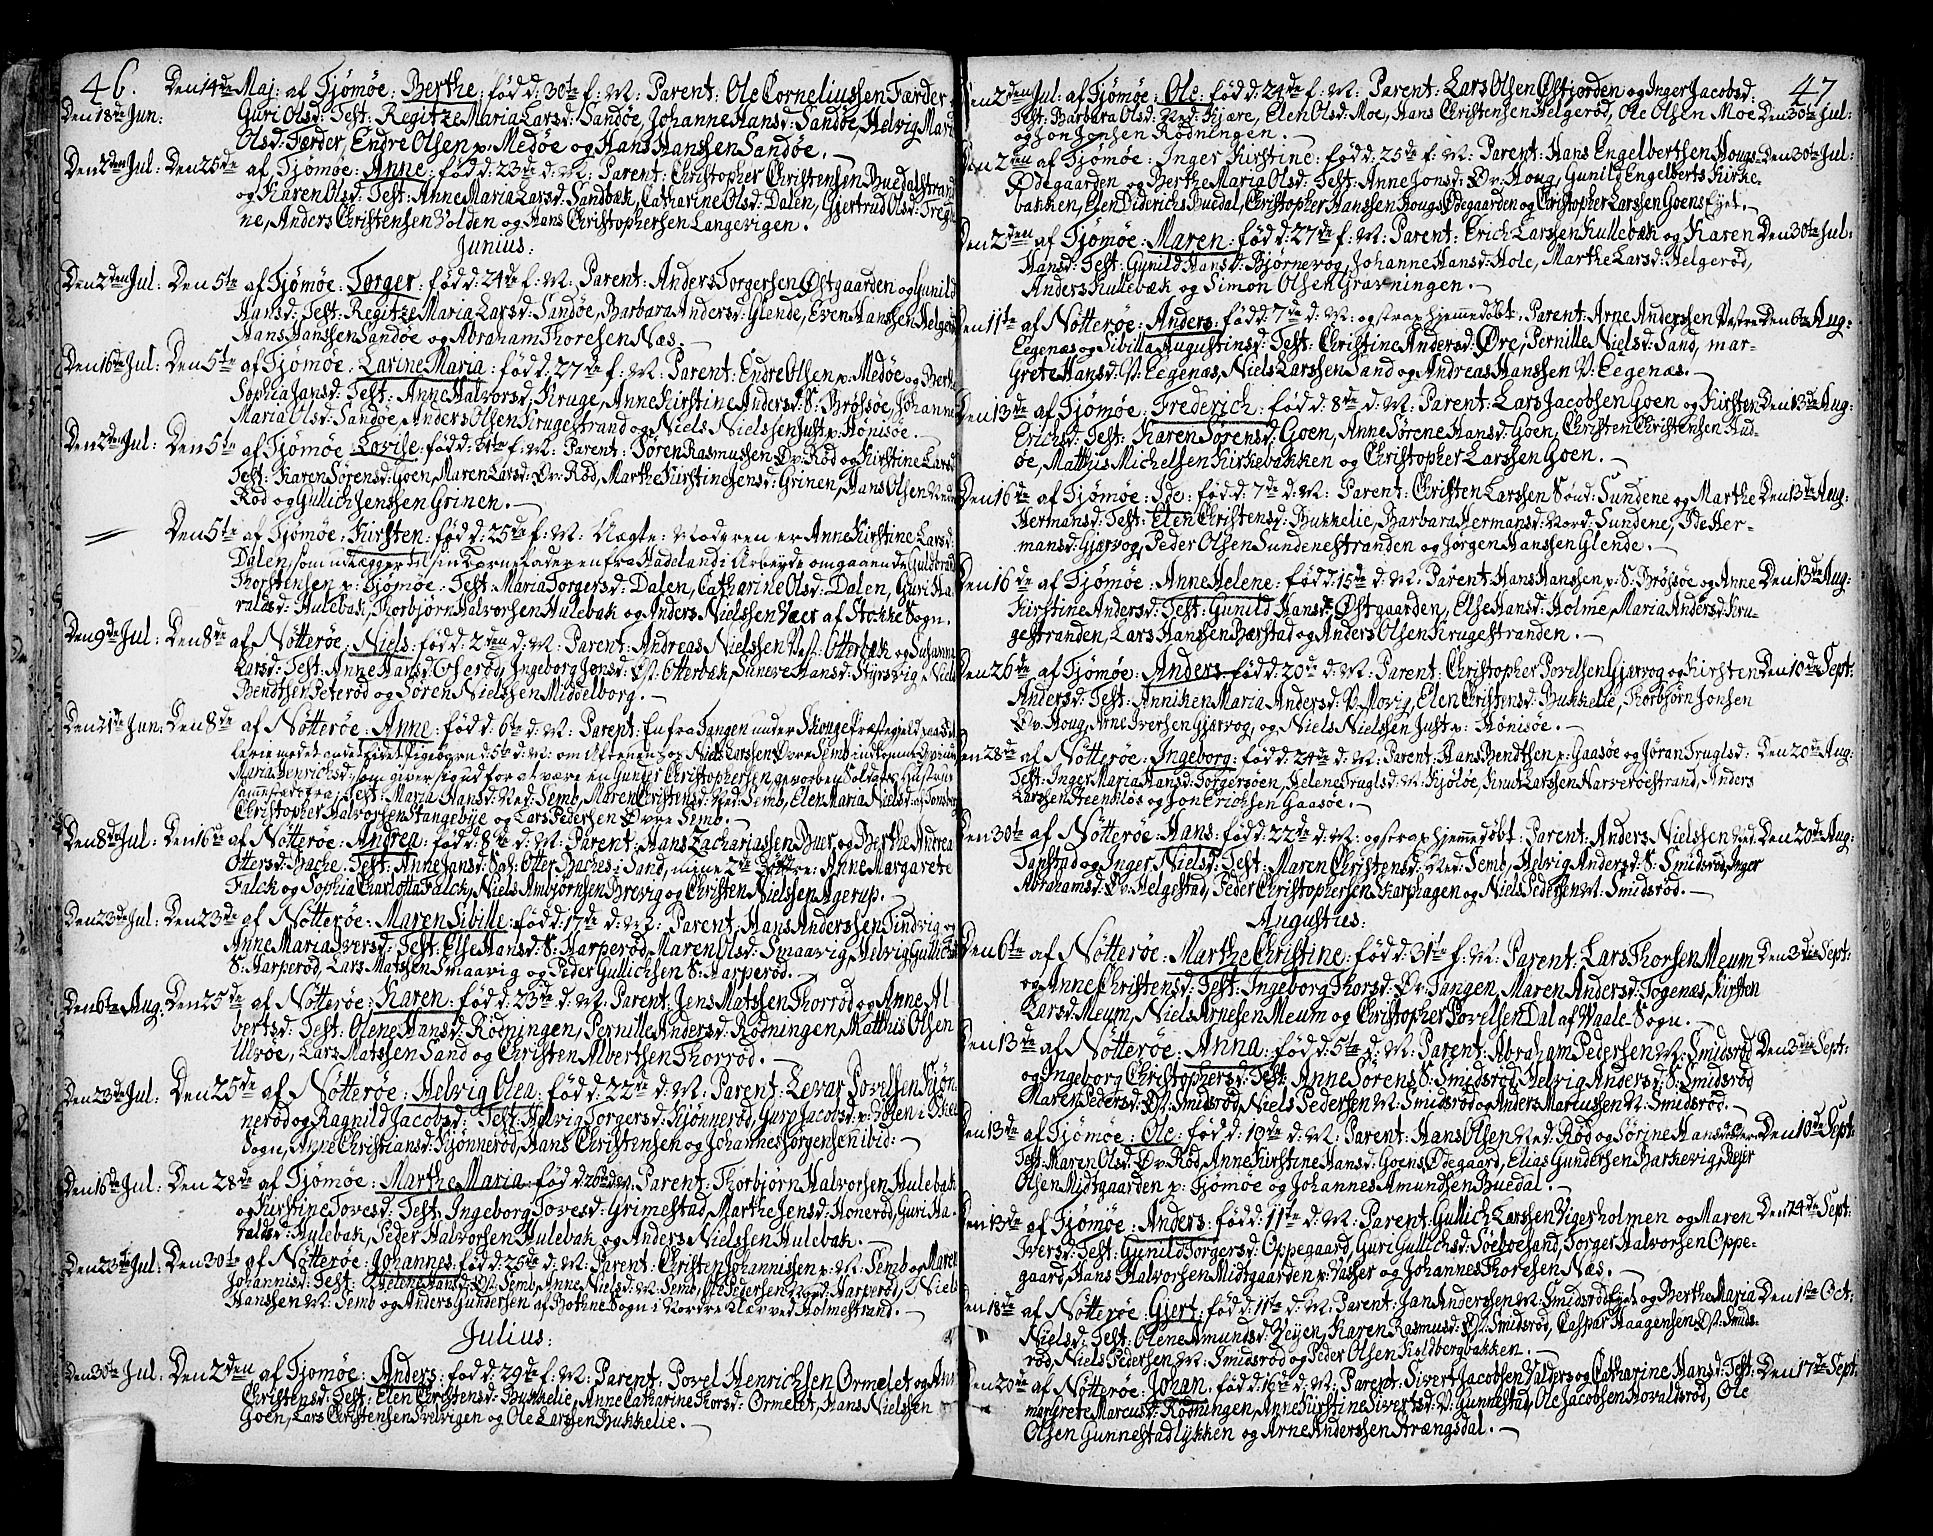 46.
Den 14de Maj: af Tjømøe: Berthe: fød d: 30te f: M: Parent: Ole Corneliussen Færder
Den 18de Jun: Guri Olsd: Test: Regitze Maria Larsd: Sandøe, Johanne Hansd: Sandøe, Helvig Maria
Olsd: Færder, Endre Olsen p: Medøe og Hans Hanssen Sandøe.
Den 2den Jul: Den 25de af Tjømøe: Anne: fød d: 23de d: M: Parent: Christopher Christensen Buedalstrand
og Karen Olsd: Test: Anne Maria Larsd: Sandbæk, Catharine Olsd: Dalen, Giertrud Olsd: Treg-
ne, Anders Christensen Volden og Hans Christophersen Langevigen.
Junius:
Den 2den Jul: Den 5te af Tjømøe: Torger: fød d: 24de f: M: Parent: Anders Torgersen Østgaarden og Gunild
Hansd: Test: Regitze Maria Larsd: Sandøe, Barbara Andersd: Glende, Even Hanssen Helgerød
Hans Hanssen Sandøe og Abraham Thoresen Næs.
Den 16de Jul: Den 5te af Tjømøe: Larine Maria: fød d: 27de f: M: Parent: Endre Olsen p: Medøe og Berthe
Sophia Jansd: Test: Anne Halvorsd: Kruge, Anne Kirstine Andersd: S: Brøssøe, Johanne
Maria Olsd: Sandøe, Anders Olsen Krugestrand og Niels Nielssen Just p: Hønisøe.
Den 2den Jul: Den 5te af Tjømøe: Lovise: fød d: 31te f: M: Parent: Søren Rasmussen Øv: Rød og Kirstine Larsd:
Test: Karen Sørensd: Goen, Maren Larsd: Øv: Rød, Marthe Kirstine Jensd: Grinen, Hans Olsen Nedre
Rød og Gullich Jenssen Grinen.
Den 5te af Tjømøe: Kirsten: fød d: 25de f: M: Uægte: Moderen er Anne Kirstine Larsd:
Dalen, som udlægger til sin Barnefader en fra Hadeland i Arbeyde omgaaende Guldbrand
Thorstensen p: Tjømøe: Test: Maria Torgersd: Dalen, Catharine Olsd: Dalen, Guri Ha-
raldsd: Hulebak, Thorbjørn Halvorsen Hulebak og Anders Nielssen Vaer af Stokke Sogn.
Den 9de Jul: Den 8de af Nøtterøe: Niels: fød d: 2den d: M: Parent: Andreas Nielssen Vest: Otterbæk og Susanne
Larsd: Test: Anne Hansd: Torød, Ingeborg Jonsd: Øst: Otterbæk, Suneve Hansd: Styrsvig, Niels
Bendtsen Peterød og Søren Nielssen Middelborg.
Den 21de Jun: Den 8de af Nøtterøe: Anne: fød d: 6te d: M: Parent: En fra Tangen under
Maria Henrichsd: som giver sig ud for at være en Gunder Christophersen, geworben Soldats Hustrue
Test: Maria Hansd: Ned: Semb, Maren Christensd: Ned: Semb, Elen Maria Nielsd: af Tønsberg
Christopher Halvorsen Stangebye og Lars Pedersen Øvre Semb.
Den 8de Jul: Den 16de af Nøtterøe: Andrea: fød d: 8de d: M: Parent: Hans Zachariassen Buer og Berthe Andrea
Ottersd: Bache: Test: Anne Jansd: Otter Baches i Sand, mine 2de Døttre: Anne Margarete
Falck og Sophia Charlotta Falck, Niels Ambjørnsen Brevig og Christen Nielssen Agerup.
Den 23de Jul: Den 23de af Nøtterøe: Maren Sibille: fød d: 17de d: M: Parent: Hans Anderssen Tindvig og
Anne Maria Iversd: Test: Else Hansd: S: Harperød, Maren Olsd: Smaavig, Helvig Gullichsd:
S: Harperød, Lars Matssen Smaavig og Peder Gullichsen S: Harperød.
Den 6te Aug: Den 25de af Nøtterøe: Karen: fød d: 23de d: M: Parent: Jens Matssen Thorrød og Anne Al-
bertsd: Test: Olene Hansd: Rødningen, Pernille Andersd: Rødningen, Matthis Olsen
Ulvøe, Lars Matssen Sand og Christen Albertsen Thorrød.
Den 23de Jul: Den 25de af Nøtterøe: Helvig Olea: fød d: 22de d: M: Parent: Levar Povelsen Kjøn-
nerød og Ragnild Jacobsd: Test: Helvig Torgersd: Kjønnerød, Guro Jacobsd: p: Holen i Skee
Sogn, Anne Christiansd: Kjønnerød, Hans Christensen og Johannes Jørgensen ibid:
Den 16de Jul: Den 28de af Tjømøe: Marthe Maria: fød d: 26de d: M: Parent: Thorbjørn Halvorsen Hulebak
og Kirstine Tovesd: Test: Ingeborg Tovesd: Grimestad, Marthe Jensd: Honerød, Guri Ha-
raldsd: Hulebak, Peder Halvorsen Hulebak og Anders Nielssen Hulebak.
Den 23de Jul: Den 30te af Nøtterøe: Johannes: fød d: 26de d: M: Parent: Christen Johannissen p: M: Semb og Maren
Johannisd: Test: Helene Hansd: Øst: Semb, Anne Nielsd: M: Semb, Ole Pedersen Nord: Harperød, Niels
Hanssen M: Semb og Anders Gundersen af Bothne Sogn i Nordre Klæv ved Holmestrand.
Julius:
Den 30te Jul: Den 2den af Tjømøe: Anders: fød d: 29de f: M: Parent: Povel Henrichsen Ormelet og Anne
Christensd: Test: Elen Christensd: Bukkelie, Anne Catharine Thorsd: Ormelet, Hans Nielssen
Goen, Lars Christensen Treligen og Ole Larssen Bukkelie.
47
Den 2den Jul: af Tjømøe: Ole: fød d: 24de f: M: Parent: Lars Olsen Østjorden og Inger Jacobsd:
Test: Barbara Olsd: Ned: Kjære, Elen Olsd: Moe, Hans Christensen Helgerød, Ole Olsen Moe Den 30te Jul:
og Jon Jonsen Rødningen.
Den 2den af Tjømøe: Inger Kirstine: fød d: 25de f: M: Parent: Hans Engelbertsen Hougs- Den 30te Jul:
Ødegaarden og Berthe Maria Olsd: Test: Anne Jonsd: Øv: Houg, Gunild Engelberts Kirke-
bakken, Elen Diderichs Buedal, Christopher Hanssen Hougs Ødegaarden og Christopher Larssen Goens Ejet.
Den 2den af Tjømøe: Maren: fød d: 27de f: M: Parent: Erich Larssen Kullebæk og Karen Den 30te Jul:
Hansd: Test: Gunild Hansd: Bjørnevog, Johanne Hansd: Hole, Marthe Larsd: Helgerød,
Anders Kullebæk og Simon Olsen Gravningen.
Den 11te af Nøtterøe: Anders: fød d: 7de d: M: og strax hjemmedøbt: Parent: Arne Anderssen Vestre Den 6te Aug:
Eegenæs og Sibilla Augustinsd: Test: Christine Andersd: Øre, Pernille Nielsd: Sand, Mar-
grete Hansd: V: Eegenæs, Niels Larssen Sand og Andreas Hanssen V: Eegenæs.
Den 13de af Tjømøe: Frederich: fød d: 8de d: M: Parent: Lars Jacobsen Goen og Kirsten Den 13de Aug:
Erichsd: Test: Karen Sørensd: Goen, Anne Sørene Hansd: Goen, Christen Christensen Hud-
øe, Matthis Michelsen Kirkebakken og Christopher Larssen Goen.
Den 16de af Tjømøe: Ide: fød d: 7de d: M: Parent: Christen Larssen Sønd: Sundene og Marthe Den 13de Aug:
Hermansd: Test: Elen Christensd: Bukkelie, Barbara Hermansd: Nord: Sundene, Ide Her-
mansd: Gjervog, Peder Olsen Sundenestranden og Jørgen Hanssen Glende.
Den 16de af Tjømøe: Anne Helene: fød d: 15de d: M: Parent: Hans Hanssen p: S: Brøjsøe og Anne Den 13de Aug:
Kirstine Andersd: Test: Gunild Hansd: Østgaarden, Else Hansd: Holme, Maria Andersd: Kru-
gestranden, Lars Hanssen Bærstad og Anders Olsen Krugestranden.
Den 26de af Tjømøe: Anders: fød d: 20de d: M: Parent: Christopher Povelsen Gjervog og Kirsten Den 10de Sept:
Andersd: Test: Anniken Maria Andersd: V: Movig, Elen Christensd: Bukkelie, Thorbjørn Jonsen
Øv: Houg, Arne Iversen Gjervog, og Niels Nielssen Just p: Hønisøe.
Den 28de af Nøtterøe: Ingeborg: fød d: 24de d: M: Parent: Hans Bendtsen p: Gaasøe og Jøran Truglsd: Den 20de Aug:
Test: Inger Maria Hansd: Torgersøen, Helene Truglsd: M: Kjøløe, Knut Larssen Narverøestrand, Anders
Larssen Steenkløs og Jon Erichsen Gaasøe.
Den 30te af Nøtterøe: Hans: fød d: 22de d: M: og strax hjemmedøbt: Parent: Anders Nielssen Ned: Den 20de Aug:
Tanstad og Inger Nielsd: Test: Maren Christensd: Ned: Semb, Helvig Andersd: S: Smidsrød, Inger
Abrahamsd: Øv: Helgestad, Peder Christophersen Skarphagen og Niels Pedersen M: Smidsrød.
Augustus:
Den 6te af Nøtterøe: Marthe Christine: fød d: 31te f: M: Parent: Lars Thorsen Meum Den 3die Sept:
og Anne Christensd: Test: Ingeborg Thorsd: Øv: Tangen, Maren Andersd: Togenæs, Kirsten
Larsd: Meum, Niels Arnesen Meum og Christopher Povelsen Dal af Waale Sogn.
Den 13de af Nøtterøe: Anna: fød d: 5te d: M: Parent: Abraham Pedersen M: Smidsrød Den 3die Sept:
og Ingeborg Christophersd: Test: Anne Sørens S: Smidsrød, Helvig Andersd: S: Smidsrød
Maren Pedersd: Øst: Smidsrød, Niels Pedersen M: Smidsrød og Anders Marcussen M: Smidsrød.
Den 13de af Tjømøe: Ole: fød d: 10de d: M: Parent: Hans Olsen Ned: Rød og Sørine Hansd: Den 10de Sept:
Test: Maren Olsd: Øv: Rød, Anne Kirstine Hansd: Goens Ødegaard, Elias Gundersen Barkevig, Bejer
Olsen Midtgaarden p: Tjømøe og Johannes Amundsen Buedal.
Den 13de af Tjømøe: Anders: fød d: 11te d: M: Parent: Gullich Larssen Vigerholmen og Maren Den 24de Sept:
Iversd: Test: Gunild Torgersd: Oppegaard, Guri Gullichsd: Søeboesand, Torger Halvorsen Oppe-
gaard, Hans Halvorsen Midtgaarden p: Vasser og Johannes Thoresen Næs.
Den 18de af Nøtterøe: Gjert: fød d: 11te d: M: Parent: Jan Anderssen M: Smidsrød Ejet og Berthe Maria Den 1ste Oct:
Nielsd: Test: Olene Amundsd: Vejen, Karen Rasmusd: Øst: Smidsrød, Caspar Haagensen Øst: Smids-
rød, Niels Pedersen M: Smidsrød og Peder Olsen Holdbergbakken.
Den 20de af Nøtterøe: Johan: fød d: 16de d: M: Parent: Sivert Jacobsen Valders og Catharine Hansd: Test: Den 17de Sept:
Margrete Marcusd: Rødningen, Anne Kirstine Sivertsd: V: Gunnestad, Ole Jacobsen Hovaldsrød, Ole
Olsen Gunnestadløkken og Arne Anderssen Strængsdal.